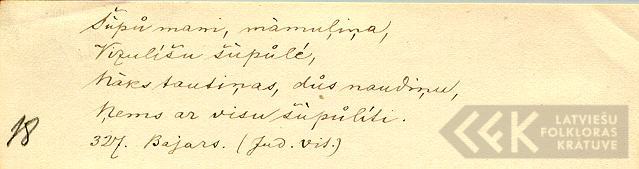 Šūpů mani, māmuļiņa,
Vizulīšu šūpůlé,
Nāks tautiņas, důs naudiņu,
Ņems ar visu šūpůlīti.
18
327. Bajars. (Jud. vit.)
LATVIEŠU
FOLKLORAS
KRATUVE